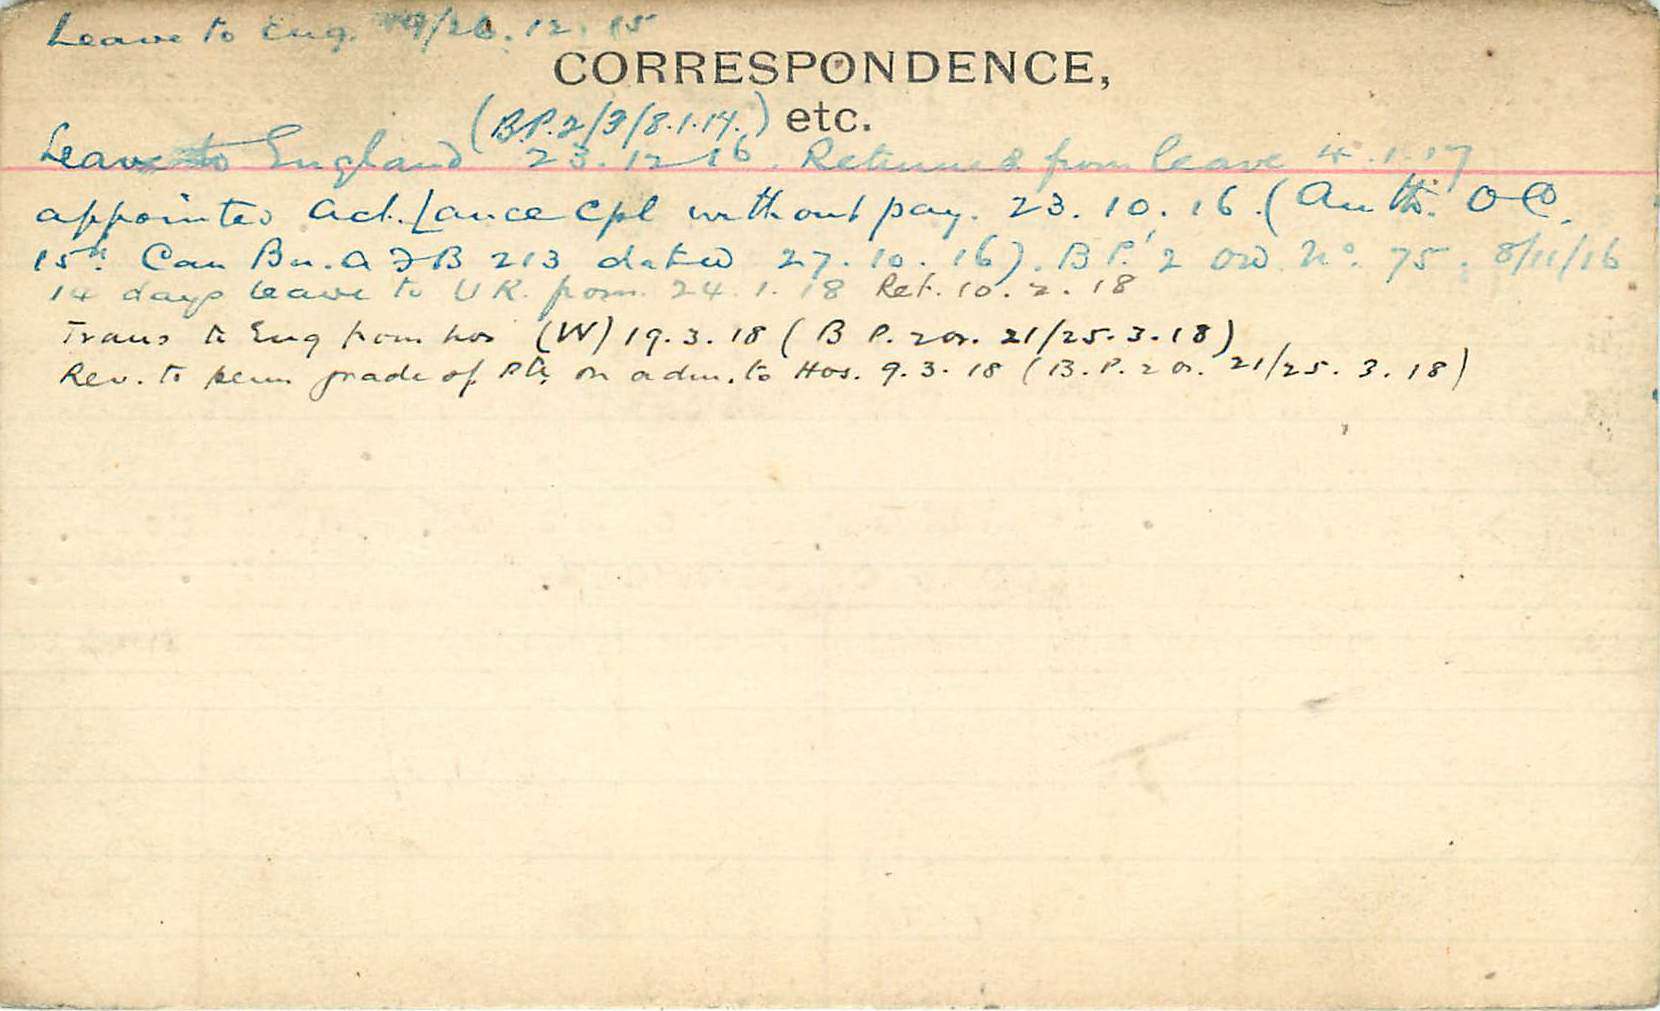 Leave to Eng. 19/26.12.15
CORRESPONDENCE,
(B.P.2/3/8.1.17.) etc.
Leave to England 23.12.16. Returned from leave 4.1.17
appointed Act. Lance Cpl without pay. 23.10.16. (Auth. O C.
15th Can Bn. A F B 213 dated 27.10.16). B P. 2 Ord No. 75. 8/11/16
14 days leave to U K. from 24.1.18 Ret. 10.2.18
Trans to Eng from hos (W) 19.3.18 (B P. 2 or. 21/25.3.18)
Rev. to perm grade of Pte, on adm. to Hos. 9.3.18 (B.P. 2 or. 21/25.3.18)